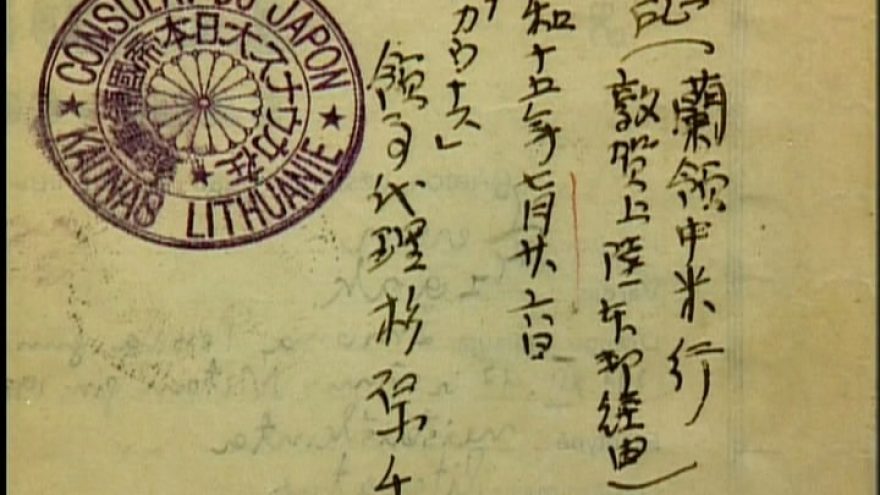 証(蘭領中米行)
(敦賀上陸、本邦経由)
和十五年七月廿六日
カウナス」
領事代理杉原千
CONSULAT DU JAPON
KAUNAS LITHUANIE
在カウナス大日本帝國領事館